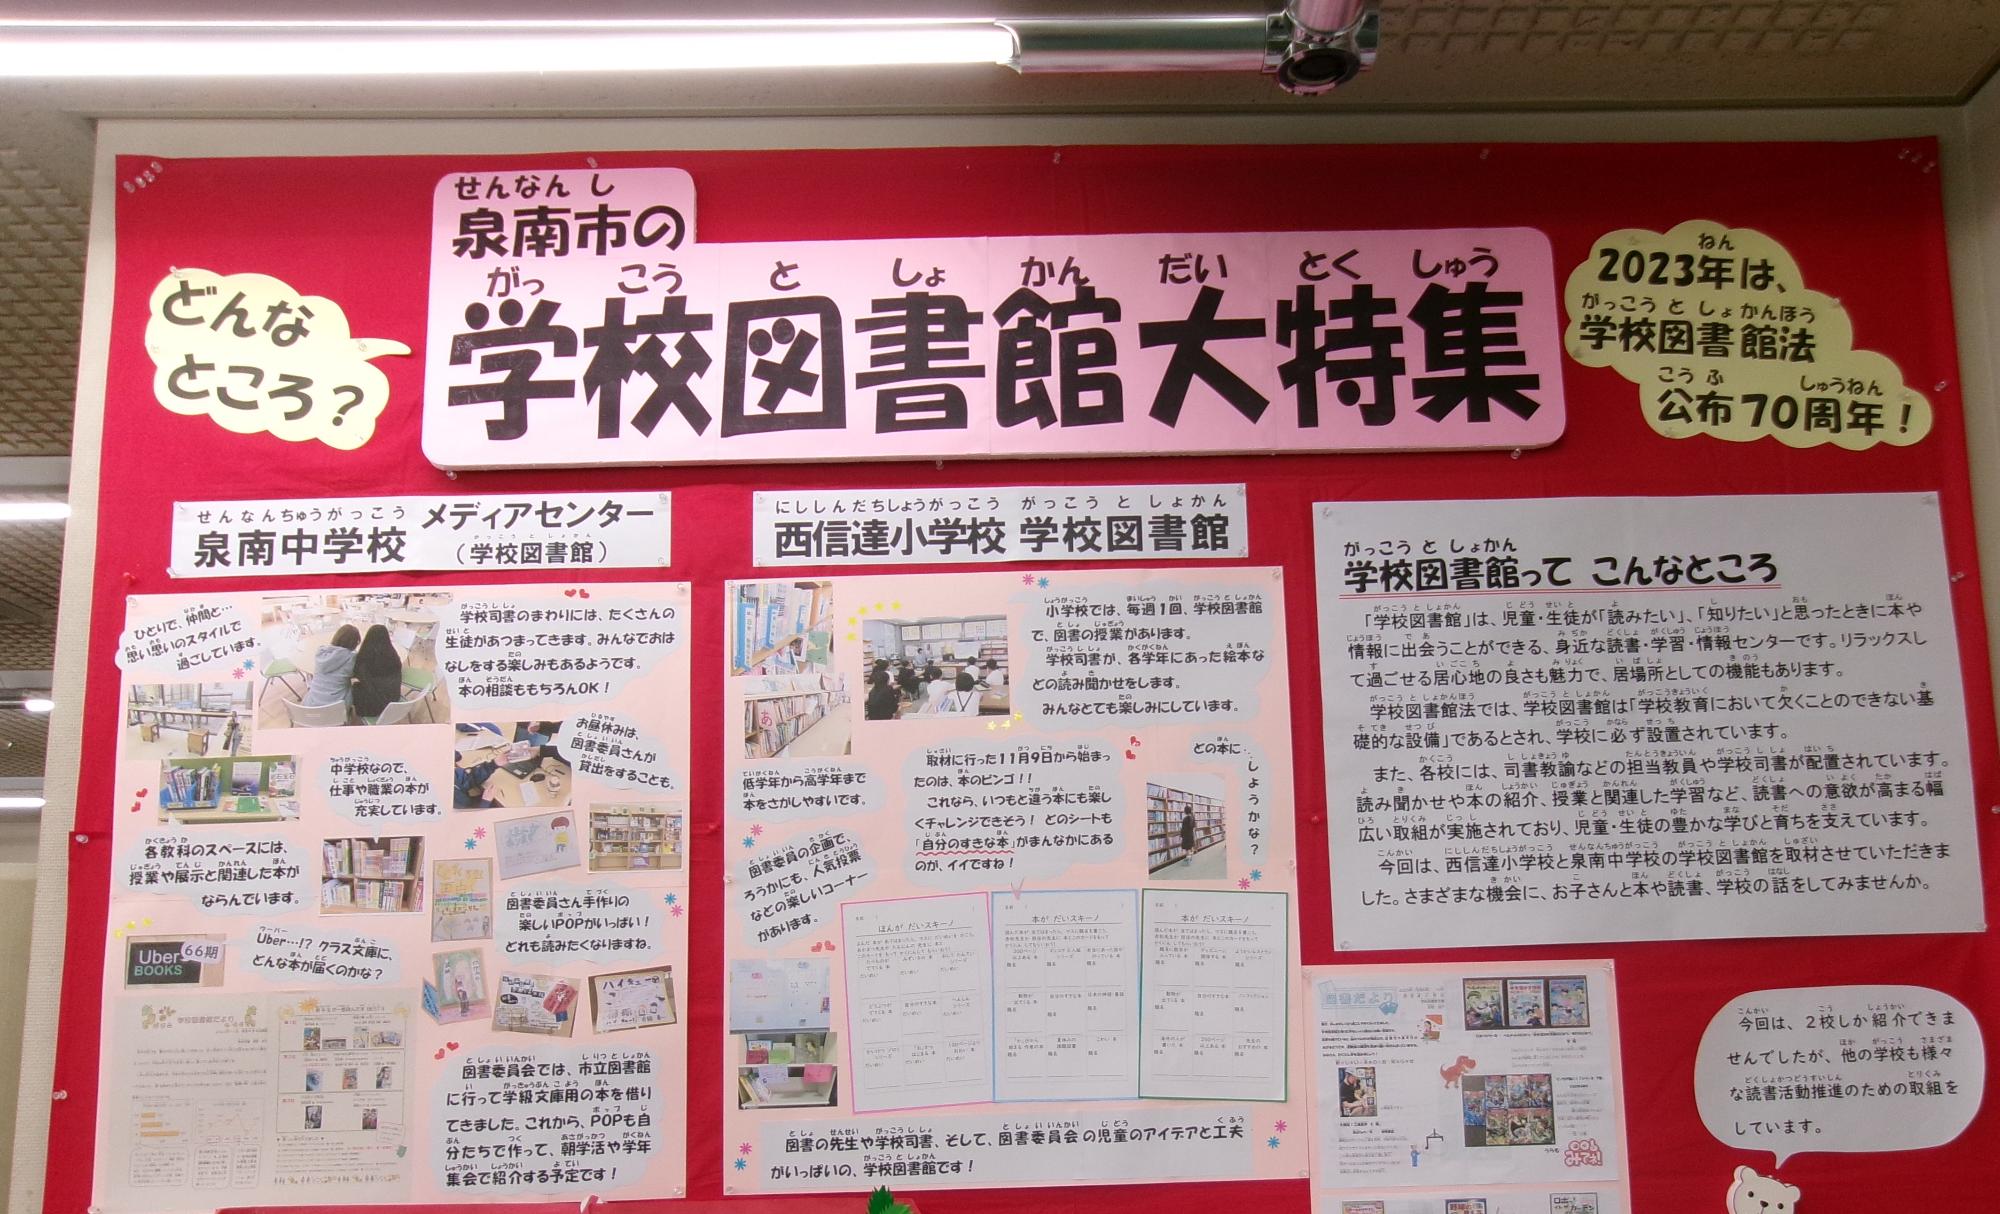 どんな
ところ?
泉南市の
学校図書館大特集
2023年は、
学校図書館法
公布70周年!
泉南中学校 メディアセンター
(学校図書館)
ひとりで、仲間と…
思い思いのスタイルで
過ごしています。
学校司書のまわりには、たくさんの
生徒があつまってきます。みんなでおは
なしをする楽しみもあるようです。
本の相談ももちろんOK!
お昼休みは、
図書委員さんが
貸出をすることも。
中学校なので、
仕事や職業の本が
充実しています。
各教科のスペースには、
授業や展示と関連した本が
ならんでいます。
図書委員さん手作りの
楽しいPOPがいっぱい!
どれも読みたくなりますね。
Uber
BOOKS
66期
Uber…!? クラス文庫に、
どんな本が届くのかな?
ハイキュー!!
図書委員会では、市立図書館
に行って学級文庫用の本を借り
てきました。これから、POPも自
分たちで作って、朝学活や学年
集会で紹介する予定です!
西信達小学校 学校図書館
小学校では、毎週1回、学校図書館
で、図書の授業があります。
学校司書が、各学年にあった絵本な
どの読み聞かせをします。
みんなとても楽しみにしています。
低学年から高学年まで
本をさがしやすいです。
取材に行った11月9日から始まっ
たのは、本のビンゴ!!
これなら、いつもと違う本にも楽し
くチャレンジできそう! どのシートも
「自分のすきな本」がまんなかにある
のが、イイですね!
どの本に…
しようかな?
図書委員の企画で、
ろうかにも、人気投票
などの楽しいコーナー
があります。
ほんが だいスキーノ
本が だいスキーノ
本が だいスキーノ
図書の先生や学校司書、そして、図書委員会の児童のアイデアと工夫
がいっぱいの、学校図書館です!
学校図書館って こんなところ
「学校図書館」は、児童・生徒が「読みたい」、「知りたい」と思ったときに本や
情報に出会うことができる、身近な読書・学習・情報センターです。リラックスし
て過ごせる居心地の良さも魅力で、居場所としての機能もあります。
学校図書館法では、学校図書館は「学校教育において欠くことのできない基
礎的な設備」であるとされ、学校に必ず設置されています。
また、各校には、司書教諭などの担当教員や学校司書が配置されています。
読み聞かせや本の紹介、授業と関連した学習など、読書への意欲が高まる幅
広い取組が実施されており、児童・生徒の豊かな学びと育ちを支えています。
今回は、西信達小学校と泉南中学校の学校図書館を取材させていただきま
した。さまざまな機会に、お子さんと本や読書、学校の話をしてみませんか。
図書だより
今回は、2校しか紹介できま
せんでしたが、他の学校も様々
な読書活動推進のための取組を
しています。